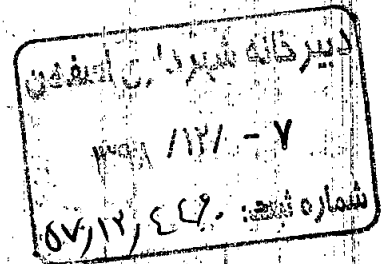 دبیرخانه شهرداری اصفهان
۱۳۹۸ /۱۲/ - ۷
شماره ثبت: